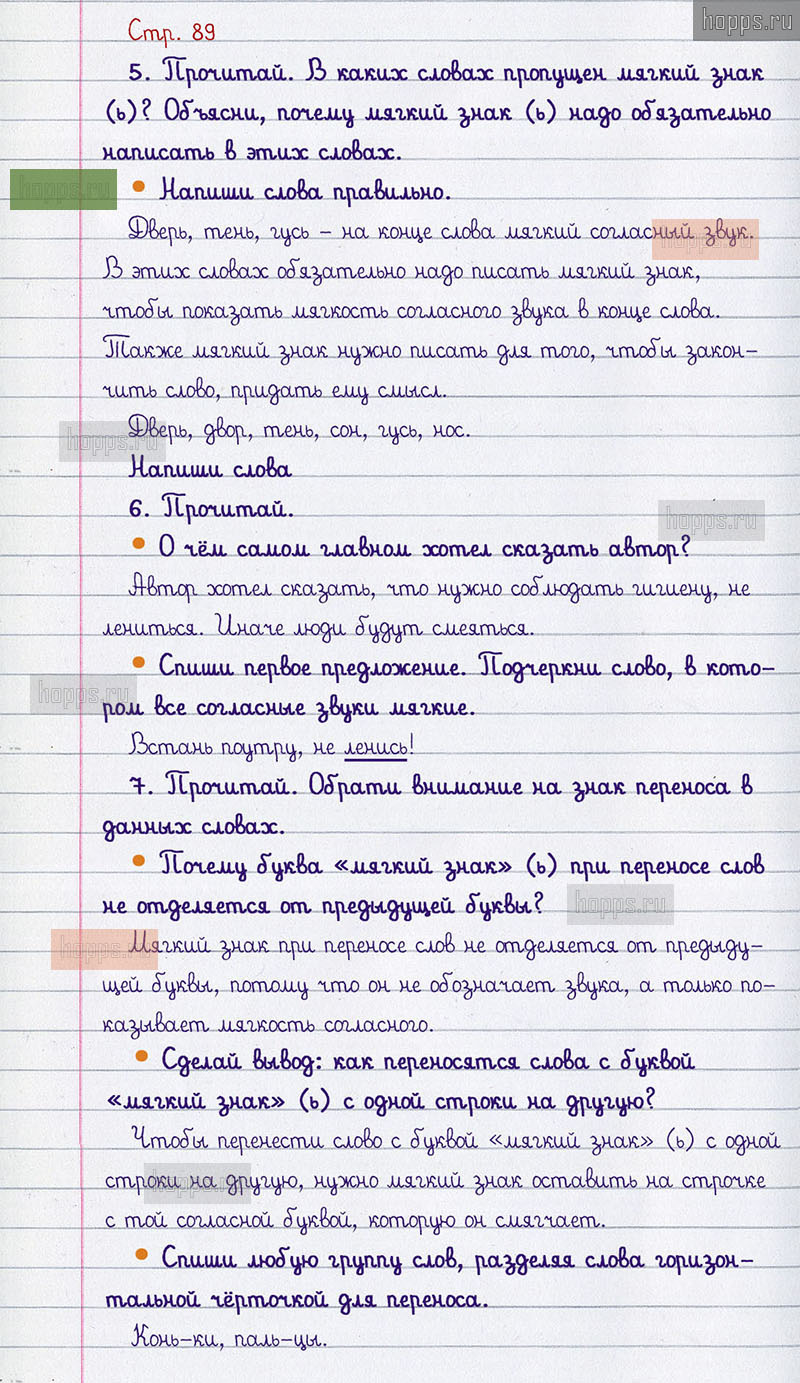 hopps.ru
Стр. 89
5. Прочитай. В каких словах пропущен мягкий знак
(ь)? Объясни, почему мягкий знак (ь) надо обязательно
написать в этих словах.
hopps.ru
• Напиши слова правильно.
Дверь, тень, гусь – на конце слова мягкий согласный звук.
hopps.ru
В этих словах обязательно надо писать мягкий знак,
чтобы показать мягкость согласного звука в конце слова.
Также мягкий знак нужно писать для того, чтобы закон-
чить слово, придать ему смысл.
Дверь, двор, тень, сон, гусь, нос.
hopps.ru
Напиши слова
6. Прочитай.
hopps.ru
• О чём самом главном хотел сказать автор?
Автор хотел сказать, что нужно соблюдать гигиену, не
лениться. Иначе люди будут смеяться.
• Спиши первое предложение. Подчеркни слово, в кото-
hopps.ru
ром все согласные звуки мягкие.
Встань поутру, не ленись!
7. Прочитай. Обрати внимание на знак переноса в
данных словах.
• Почему буква «мягкий знак» (ь) при переносе слов
не отделяется от предыдущей буквы?
hopps.ru
Мягкий знак при переносе слов не отделяется от предыду-
hopps.ru
щей буквы, потому что он не обозначает звука, а только по-
казывает мягкость согласного.
• Сделай вывод: как переносятся слова с буквой
«мягкий знак» (ь) с одной строки на другую?
Чтобы перенести слово с буквой «мягкий знак» (ь) с одной
строки на другую, нужно мягкий знак оставить на строчке
hopps.ru
с той согласной буквой, которую он смягчает.
• Спиши любую группу слов, разделяя слова горизон-
тальной чёрточкой для переноса.
Конь-ки, паль-цы.